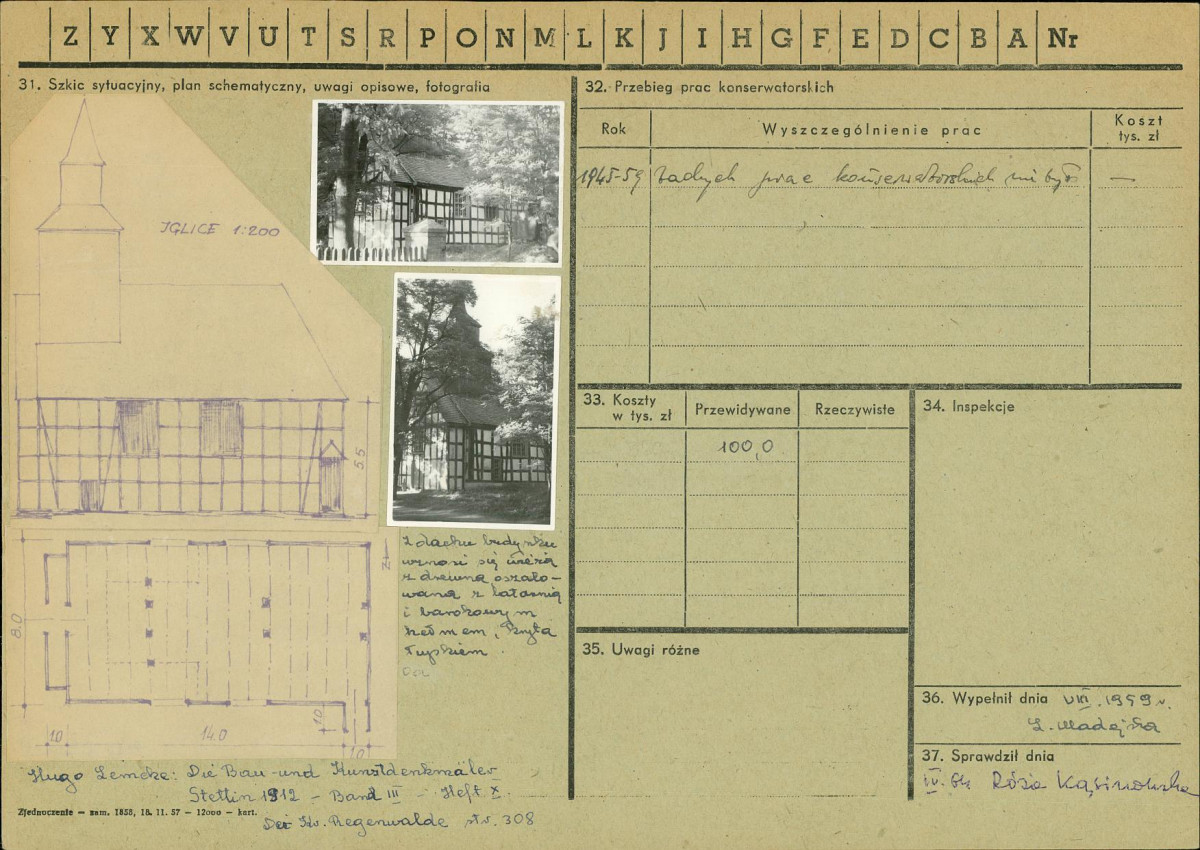 Z Y X W V U T S R P O N M L K J I H G F E D C B A Nr
31. Szkic sytuacyjny, plan schematyczny, uwagi opisowe, fotografia
IGLICE 1:200
5.5
8.0
N
1.0
14.0
1.0
1.0
Z dachu budynku
wznosi się wieża
z drewna oszalo-
wana z latarnią
i barokowym
hełmem, kryta
łupkiem.
Hugo Lemcke: Die Bau-und Kunstdenkmäler
Stettin 1912 – Band III – Heft X.
Der Kr. Regenwalde str. 308
Zjednoczenie — zam. 1858, 18. 11. 57 — 12000 — kart.
32. Przebieg prac konserwatorskich
Rok
Wyszczególnienie prac
Koszt
tys. zł
1945-59 żadnych prac konserwatorskich nie było —
33. Koszty
w tys. zł
Przewidywane
Rzeczywiste
100,0
34. Inspekcje
35. Uwagi różne
36. Wypełnił dnia VIII. 1959 r.
Z. Madejska
37. Sprawdził dnia
IV. 60 Róża Kąsinowska